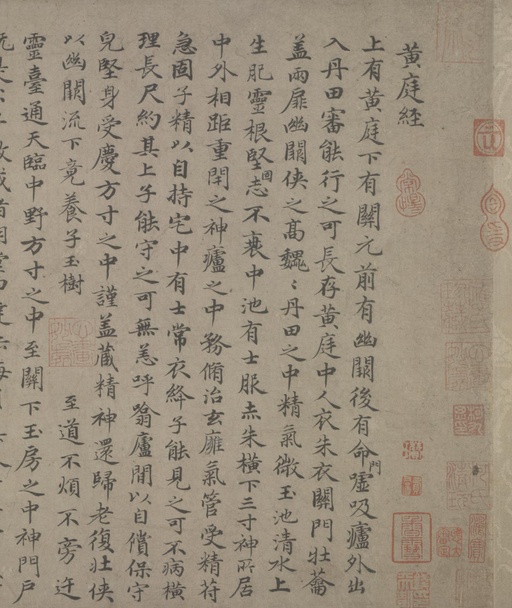 黄庭経
上有黄庭下有關元前有幽關後有命門噓吸廬外出
入丹田審能行之可長存黄庭中人衣朱衣關門壮籥
盖兩扉幽關侠之髙巍〻丹田之中精氣微玉池清水上
生肥靈根堅固志不衰中池有士服赤朱横下三寸神所居
中外相距重閇之神廬之中務脩治玄廱氣管受精苻
急固子精以自持宅中有士常衣絳子能見之可不病横
理長尺約其上子能守之可無恙呼翕廬間以自償保守
皃堅身受慶方寸之中謹盖蔵精神還歸老復壮侠
以幽關流下竟養子玉樹 至道不煩不旁迕
靈臺通天臨中野方寸之中至關下玉房之中神門户